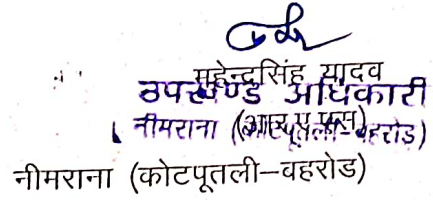 महेन्द्रसिंह यादव
उपखण्ड अधिकारी
(आर.ए.एस)
नीमराना (कोटपूतली-बहरोड)
नीमराना (कोटपूतली–बहरोड)